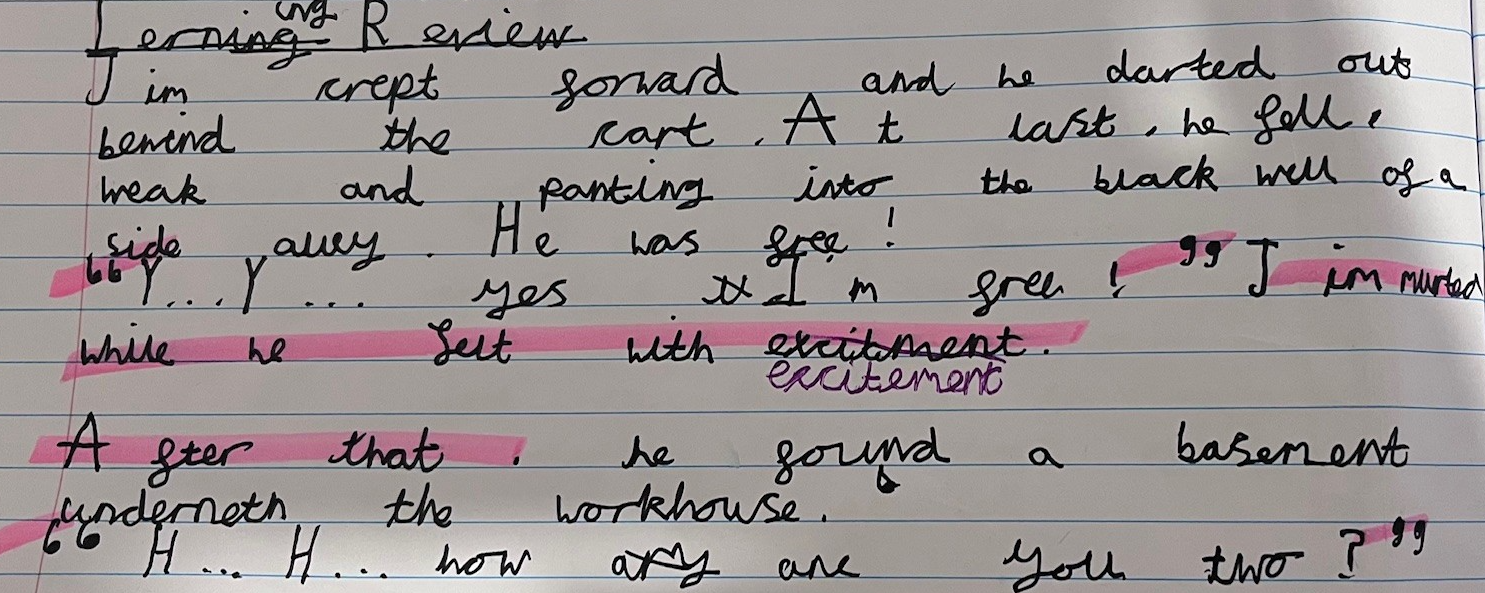 Lerning Review
Jim crept forward and he darted out
behind the cart. At last, he fell,
weak and panting into the black well of a
side alley. He was free!
"Y... Y... yes I'm free!" Jim murted
while he felt with excitment.
excitement
After that, he found a basement
underneth the workhouse.
"H... H... how are you two?"